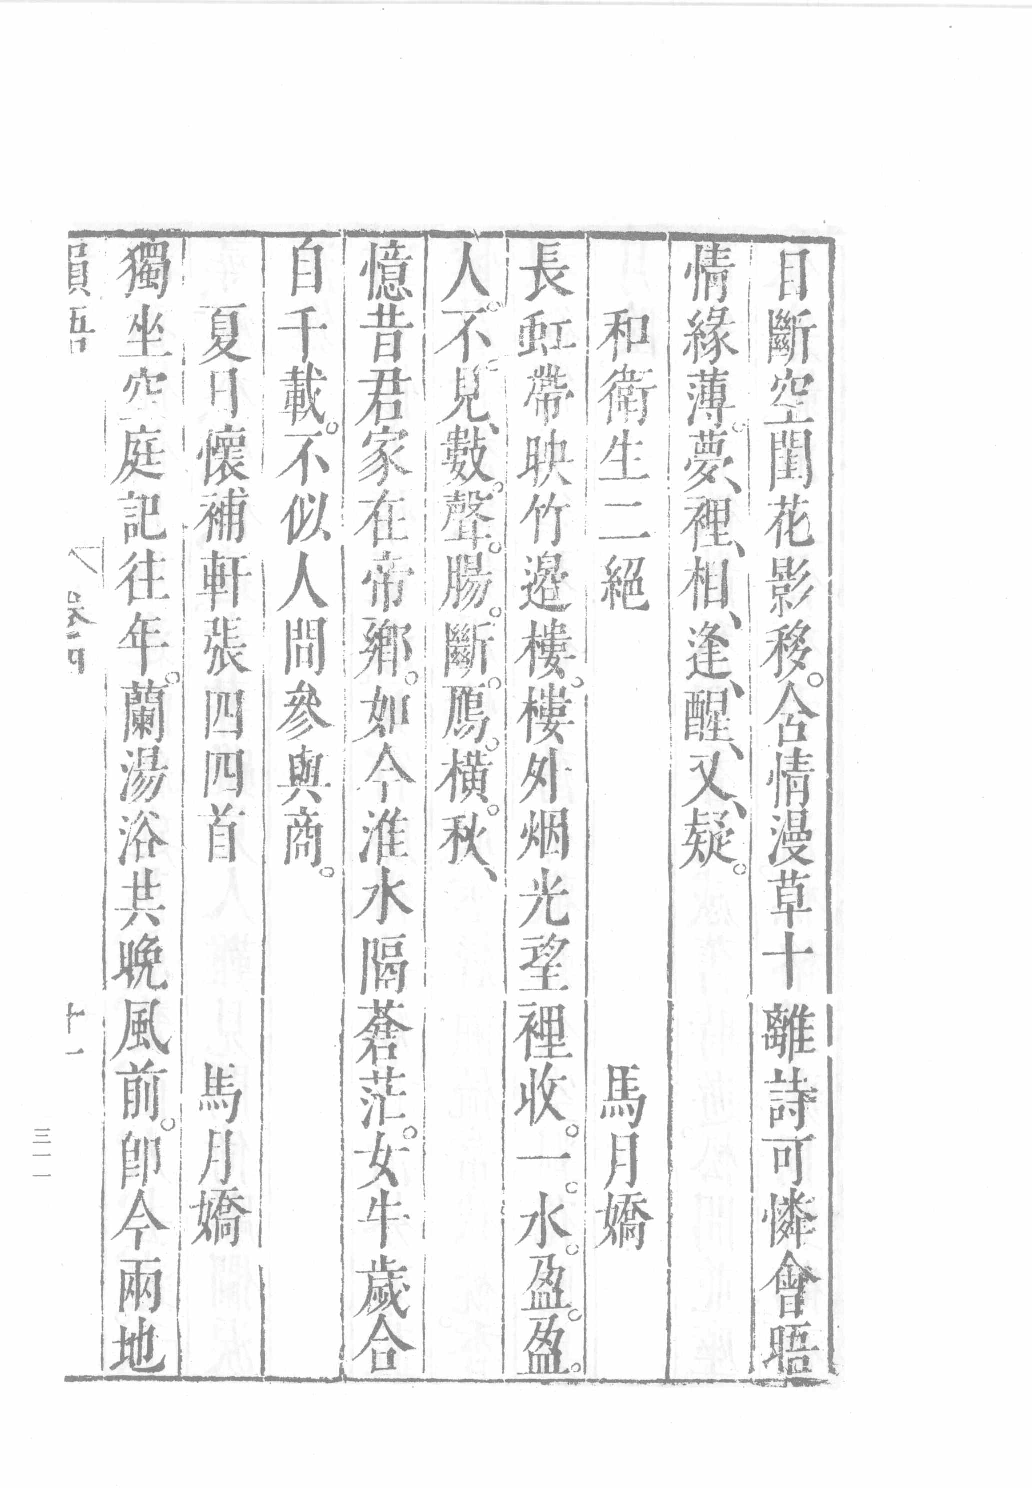 目斷空閨花影移。含情漫草十離詩可憐會晤
情緣薄。夢、裡、相、逢、醒、又、疑。
和衛生二絕　馬月嬌
長虹帶映竹邉樓。樓外烟光望裡收。一。水。盈。盈。
人。不。見、數。聲。腸。斷。鴈。橫。秋、
憶昔君家在帝鄉。如今淮水隔蒼茫。女牛歲合
自千載。不似人間參與商。
夏日懷補軒張四四首　馬月嬌
獨坐空庭記往年。蘭湯浴共晚風前。卽今兩地
韻語　卷四　十一
三一一